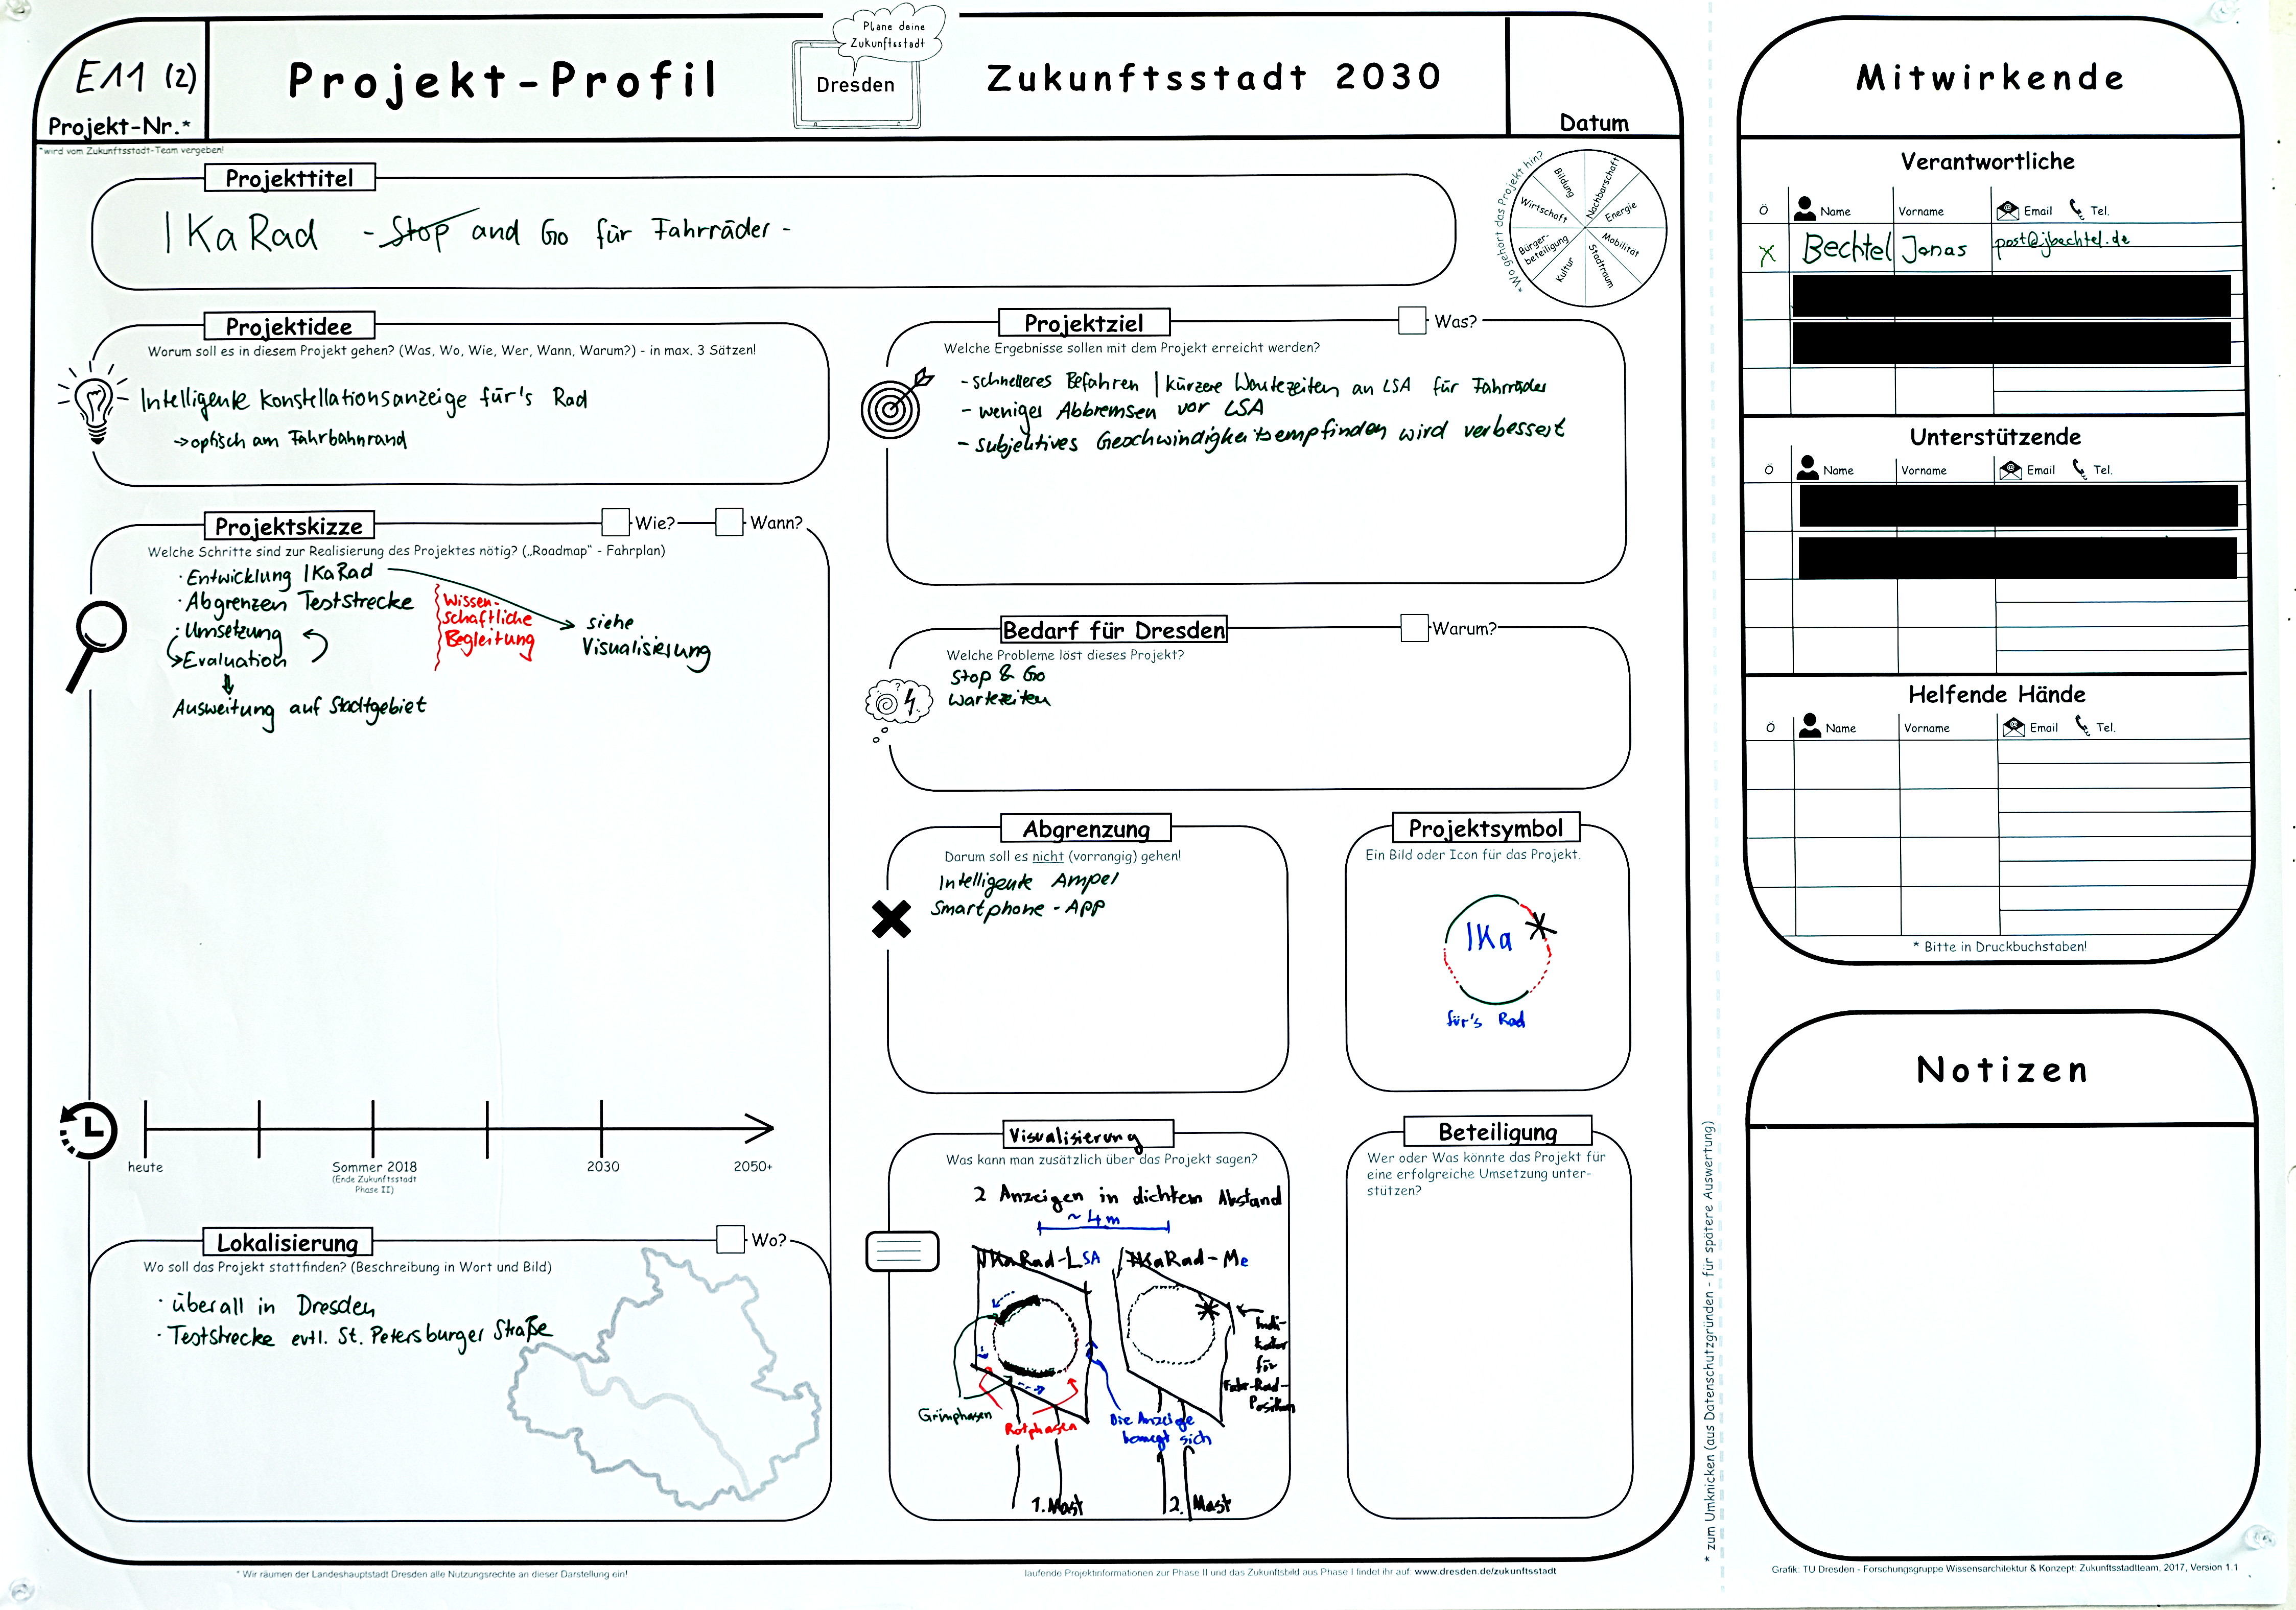 E11 (2)
Projekt-Nr.*
Projekt-Profil
Plane deine
Zukunftsstadt
Dresden
Zukunftsstadt 2030
Datum
*wird vom Zukunftsstadt-Team vergeben!
Projekttitel
IKaRad - Stop and Go für Fahrräder -
*Wo gehört das Projekt hin?
Bildung
Nachbarschaft
Wirtschaft
Energie
Bürger-
beteiligung
Mobilität
Kultur
Stadtraum
Projektidee
Worum soll es in diesem Projekt gehen? (Was, Wo, Wie, Wer, Wann, Warum?) - in max. 3 Sätzen!
Intelligente Konstellationsanzeige für's Rad
→ optisch am Fahrbahnrand
Projektziel
Was?
Welche Ergebnisse sollen mit dem Projekt erreicht werden?
- schnelleres Befahren | kürzere Wartezeiten an LSA für Fahrräder
- weniges Abbremsen vor LSA
- subjektives Geschwindigkeitsempfinden wird verbessert
Projektskizze
Wie?
Wann?
Welche Schritte sind zur Realisierung des Projektes nötig? („Roadmap" - Fahrplan)
· Entwicklung IKaRad
· Abgrenzen Teststrecke
· Umsetzung
→ Evaluation
Ausweitung auf Stadtgebiet
Wissen-
schaftliche
Begleitung
siehe
Visualisierung
heute
Sommer 2018
(Ende Zukunftsstadt
Phase II)
2030
2050+
Bedarf für Dresden
Warum?
Welche Probleme löst dieses Projekt?
Stop & Go
Wartezeiten
Abgrenzung
Darum soll es nicht (vorrangig) gehen!
Intelligente Ampel
Smartphone - APP
Projektsymbol
Ein Bild oder Icon für das Projekt.
IKa
für's Rad
Lokalisierung
Wo?
Wo soll das Projekt stattfinden? (Beschreibung in Wort und Bild)
· überall in Dresden
· Teststrecke evtl. St. Petersburger Straße
Visualisierung
Was kann man zusätzlich über das Projekt sagen?
2 Anzeigen in dichtem Abstand
~ 4 m
IKaRad-LSA
IKaRad-Me
Grünphasen
Rotphasen
Die Anzeige
bewegt sich
Indi-
kator
für
Fahr-Rad-
Position
1. Mast
2. Mast
Beteiligung
Wer oder Was könnte das Projekt für
eine erfolgreiche Umsetzung unter-
stützen?
* Wir räumen der Landeshauptstadt Dresden alle Nutzungsrechte an dieser Darstellung ein!
laufende Projektinformationen zur Phase II und das Zukunftsbild aus Phase I findet ihr auf: www.dresden.de/zukunftsstadt
* zum Umknicken (aus Datenschutzgründen - für spätere Auswertung)
Mitwirkende
Verantwortliche
Ö Name Vorname Email Tel.
X Bechtel Jonas post@jbechtel.de
Unterstützende
Ö Name Vorname Email Tel.
Helfende Hände
Ö Name Vorname Email Tel.
* Bitte in Druckbuchstaben!
Notizen
Grafik: TU Dresden - Forschungsgruppe Wissensarchitektur & Konzept: Zukunftsstadtteam, 2017, Version 1.1